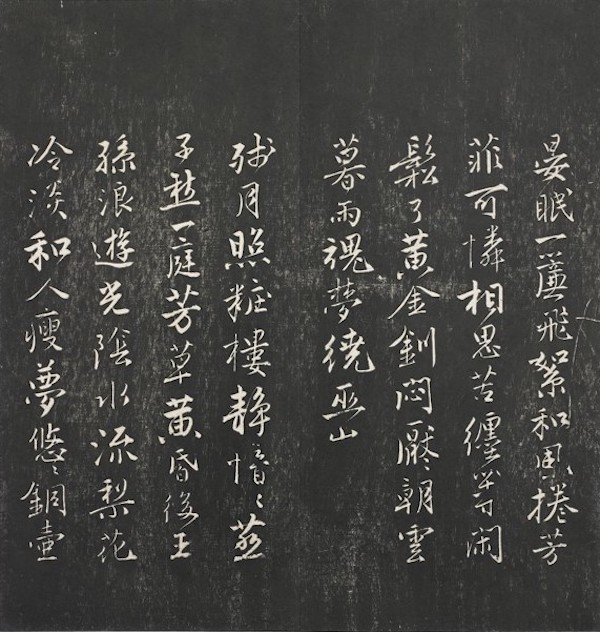 晏眠一簾飛絮和風捲芳
菲可憐相思苦纏等閑
鬆了黃金釧悶厭朝雲
暮雨魂夢繞巫山
殘月照粧樓靜愔〻燕
子愁一庭芳草黃昏後王
孫浪遊光陰水流梨花
冷淡和人瘦夢悠〻銅壺